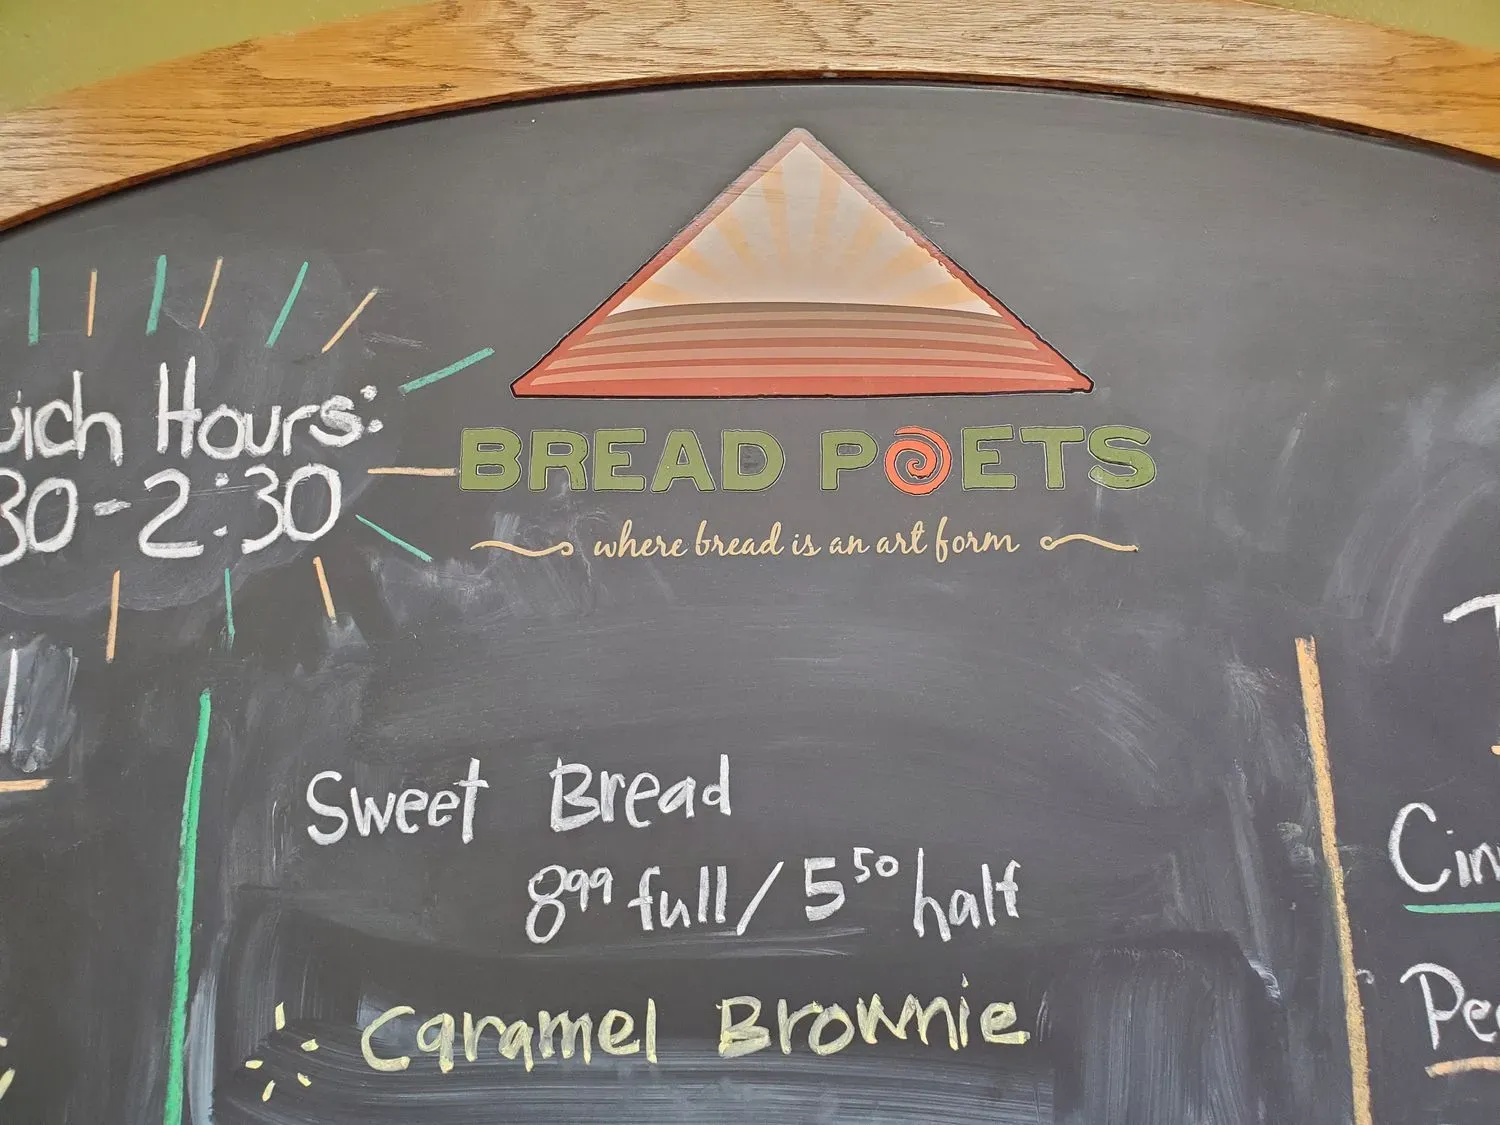 BREAD POETS
where bread is an art form
Hours:
30-2:30
Sweet Bread
8.99 full / 5.50 half
Caramel Brownie